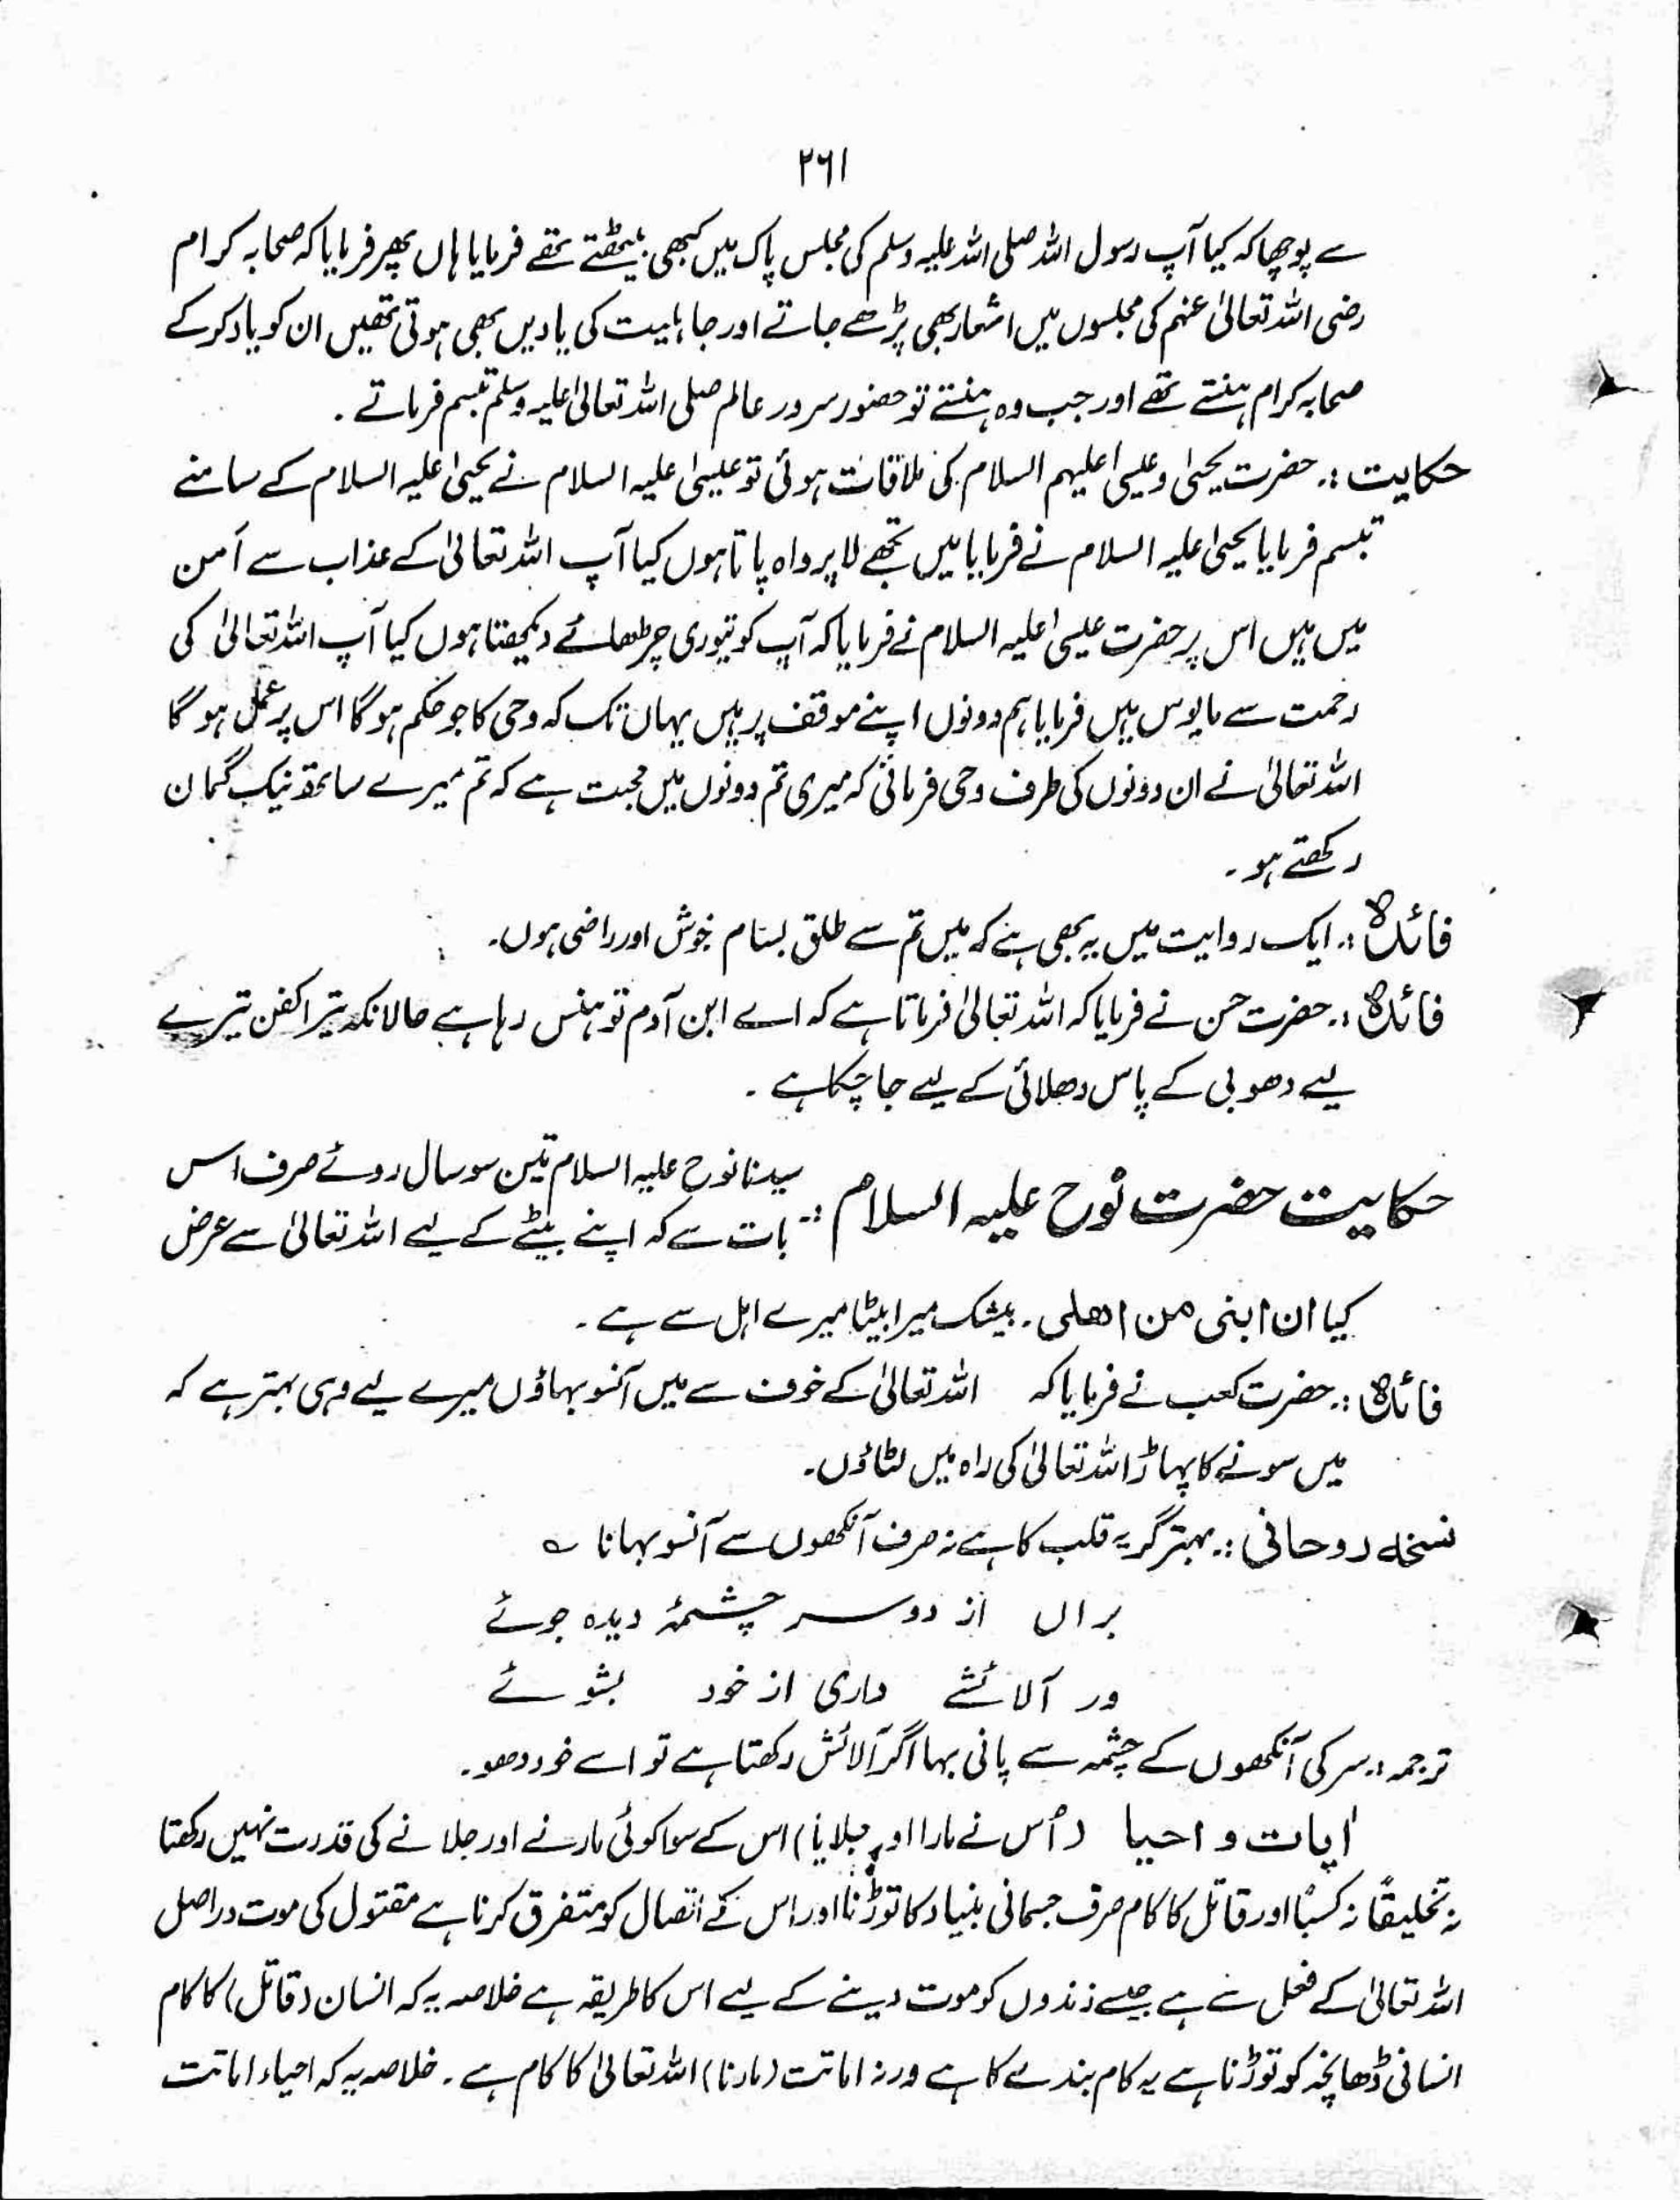 ۲۶۱
سے پوچھا کہ کیا آپ رسول اللہ صلی اللہ علیہ وسلم کی مجلس پاک میں کبھی بیٹھتے تھے فرمایا ہاں پھر فرمایا کہ صحابہ کرام
رضی اللہ تعالیٰ عنہم کی مجلسوں میں اشعار بھی پڑھے جاتے اور جاہلیت کی یادیں بھی ہوتی تھیں ان کو یاد کر کے
صحابہ کرام ہنستے تھے اور جب وہ ہنستے تو حضور سرور عالم صلی اللہ تعالیٰ علیہ وسلم تبسم فرماتے ۔
حکایت :۔ حضرت یحییٰ و عیسیٰ علیہم السلام کی ملاقات ہوئی تو عیسیٰ علیہ السلام نے یحییٰ علیہ السلام کے سامنے
تبسم فرمایا یحییٰ علیہ السلام نے فرمایا میں تجھے لاپرواہ پاتا ہوں کیا آپ اللہ تعالیٰ کے عذاب سے اَمن
میں ہیں اس پر حضرت عیسیٰ علیہ السلام نے فرمایا کہ آپ کو تیوری چڑھائے دیکھتا ہوں کیا آپ اللہ تعالیٰ کی
رحمت سے مایوس ہیں فرمایا ہم دونوں اپنے موقف پر ہیں یہاں تک کہ وحی کا جو حکم ہو گا اس پر عمل ہو گا
اللہ تعالیٰ نے ان دونوں کی طرف وحی فرمائی کہ میری تم دونوں میں محبت ہے کہ تم میرے ساتھ نیک گمان
رکھتے ہو ۔
فائدہ :۔ ایک روایت میں یہ بھی ہے کہ میں تم سے طلق بسام خوش اور راضی ہوں۔
فائدہ :۔ حضرت حسن نے فرمایا کہ اللہ تعالیٰ فرماتا ہے کہ اے ابن آدم تو ہنس رہا ہے حالانکہ تیرا کفن تیرے
لیے دھوبی کے پاس دھلائی کے لیے جا چکا ہے ۔
حکایت حضرت نوح علیہ السلام :۔ سیدنا نوح علیہ السلام تین سو سال روئے صرف اس
بات سے کہ اپنے بیٹے کے لیے اللہ تعالیٰ سے عرض
کیا ان ابنی من اھلی ۔ بیشک میرا بیٹا میرے اہل سے ہے ۔
فائدہ :۔ حضرت کعب نے فرمایا کہ اللہ تعالیٰ کے خوف سے میں آنسو بہاؤں میرے لیے وہی بہتر ہے کہ
میں سونے کا پہاڑ اللہ تعالیٰ کی راہ میں لٹاؤں۔
نسخہ روحانی :۔ بہتر گریہ قلب کا ہے نہ صرف آنکھوں سے آنسو بہانا ؎
براں از دو سر چشمۂ دیدہ جوئے
ور آلائشے داری از خود بشوئے
ترجمہ :۔ سر کی آنکھوں کے چشمہ سے پانی بہا اگر آلائش رکھتا ہے تو اسے خود دھو ۔
اٰیات و احیا (اُس نے مارا اور جلایا) اس کے سوا کوئی مارنے اور جلانے کی قدرت نہیں رکھتا
نہ تخلیقاً نہ کسباً اور قاتل کا کام صرف جسمانی بنیاد کا توڑنا اور اس کے اتصال کو متفرق کرنا ہے مقتول کی موت دراصل
اللہ تعالیٰ کے فعل سے ہے جیسے زندوں کو موت دینے کے لیے اس کا طریقہ ہے خلاصہ یہ کہ انسان (قاتل) کا کام
انسانی ڈھانچہ کو توڑنا ہے یہ کام بندے کا ہے ورنہ اماتت (مارنا) اللہ تعالیٰ کا کام ہے ۔ خلاصہ یہ کہ احیاء اماتت